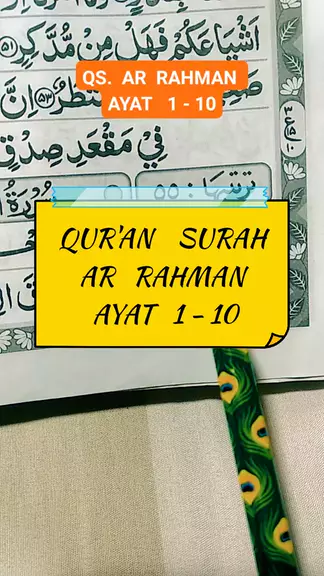 أَشْيَاعَكُمْ فَهَلْ مِنْ مُدَّكِرٍ ٥١
QS. AR RAHMAN
AYAT 1 - 10
إِنَّ
٥٣
فِي مَقْعَدِ صِدْقٍ
ترتيبها : ٥٥
QUR'AN SURAH
AR RAHMAN
AYAT 1 - 10